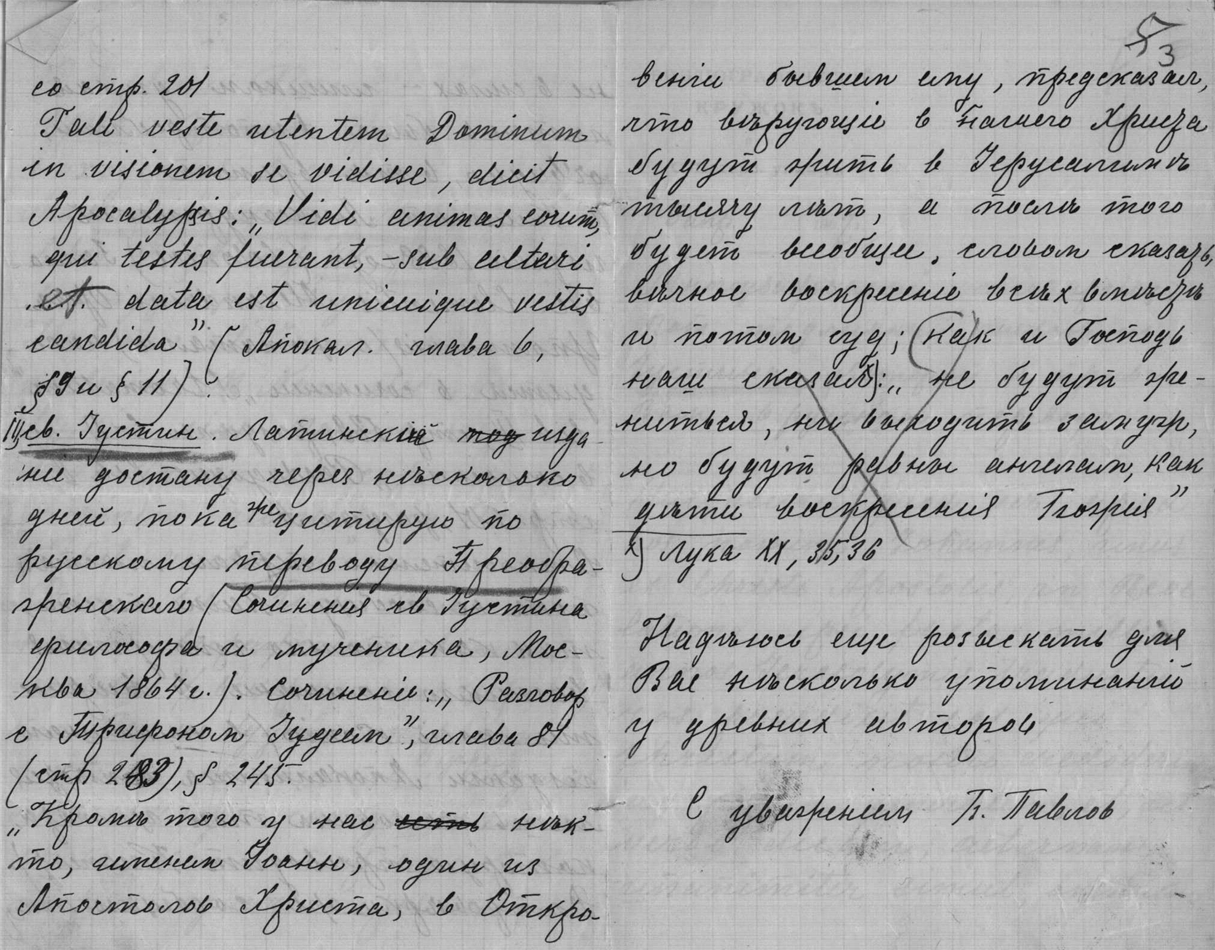 со стр. 201
Tali veste utentem Dominum
in visionem se vidisse, dicit
Apocalypsis: „Vidi animas eorum,
qui testes fuerant, - sub altari
et data est unicuique vestis
candida” (Апокал. глава 6,
§ 9 и § 11).
III св. Густин. Латинский под изда-
ние достану через нѣсколько
дней, пока же цитирую по
русскому переводу Преобра-
женского (Сочинения св Густина
философа и мученика, Мос-
ква 1864 г.). Сочиненiе: „Разговор
с Трифоном Iудеем”, глава 81
(стр 283), § 245.
„Кромѣ того у нас есть нѣк-
то, именем Iоанн, один из
Апостолов Христа, в Откро-
53
венiи бывшем ему, предсказал,
что вѣрующiе в нашего Христа
будут жить в Iерусалимѣ
тысячу лѣт, а послѣ того
будет всеобще, словом сказать,
вѣчное воскресенiе всѣх вмѣстѣ
и потом суд; (как и Господь
наш сказал): „не будут же-
ниться, ни выходить замуж,
но будут равны ангелам, как
дѣти воскресения Божия”
x) Лука XX, 35,36
Надѣюсь еще розыскать для
Вас нѣсколько упоминанiй
у древних авторов
С уважением П. Павлов